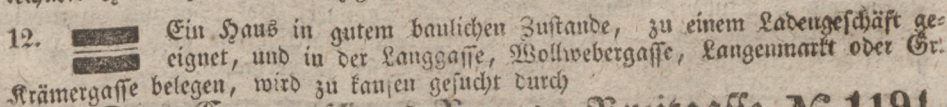 12. Ein Haus in gutem baulichen Zustande, zu einem Ladengeschäft ge-
eignet, und in der Langgasse, Wollwebergasse, Langenmarkt oder Gr.
Krämergasse belegen, wird zu kaufen gesucht durch